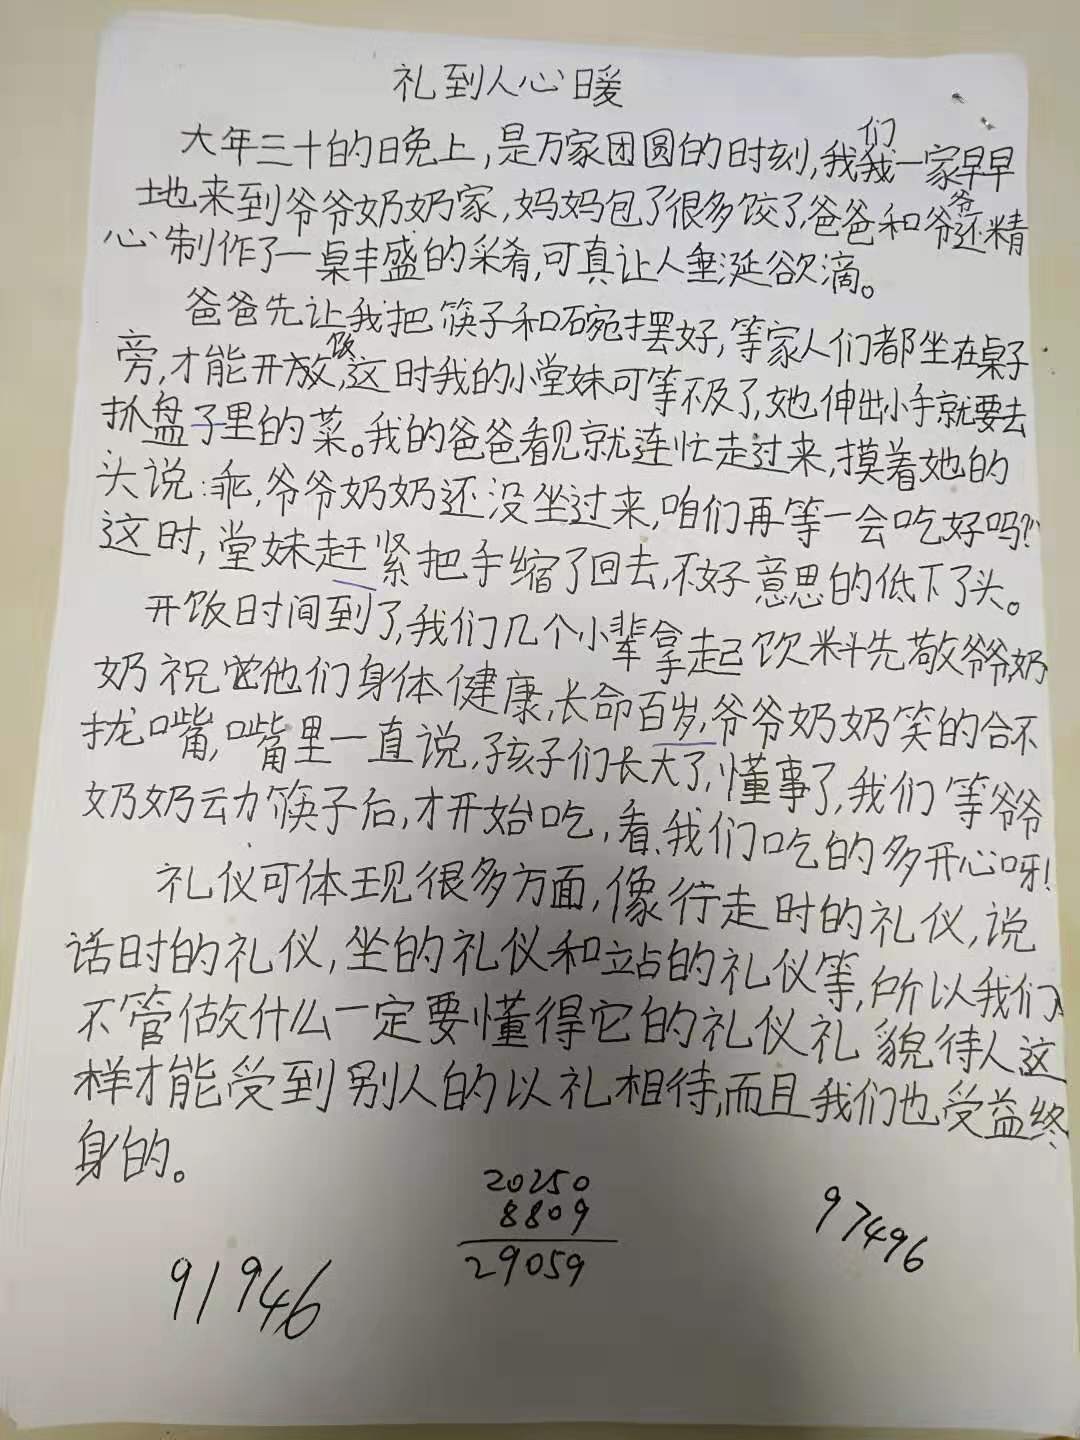 礼到人心暖
大年三十的晚上，是万家团圆的时刻，我们一家早早
地来到爷爷奶奶家，妈妈包了很多饺了，爸爸和爷爷还精
心制作了一桌丰盛的采肴，可真让人垂涎欲滴。
爸爸先让我把筷子和碗摆好，等家人们都坐在桌子
旁，才能开饭，这时我的小堂妹可等不及了，她伸出小手就要去
抓盘子里的菜。我的爸爸看见就连忙走过来，摸着她的
头说：乖，爷爷奶奶还没坐过来，咱们再等一会吃好吗？"
这时，堂妹赶紧把手缩了回去，不好意思的低下了头。
开饭时间到了，我们几个小辈拿起饮料先敬爷爷奶
奶祝他们身体健康，长命百岁，爷爷奶奶笑的合不
拢嘴，嘴里一直说，孩子们长大了，懂事了，我们等爷爷
奶奶动筷子后，才开始吃，看、我们吃的多开心呀！
礼仪可体现很多方面，像行走时的礼仪，说
话时的礼仪，坐的礼仪和站的礼仪等，所以我们
不管做什么一定要懂得它的礼仪礼貌待人这
样才能受到别人的以礼相待，而且我们也受益终
身的。
20250
8809
29059
97496
91946